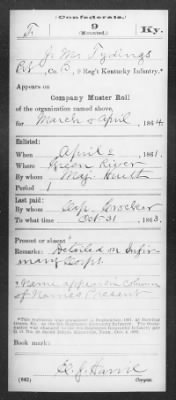 (Confederate.)
T 9 Ky.
(Mounted.)
J. M. Tydings
Pvt, Co. B, 9 Reg't Kentucky Infantry.*
Appears on
Company Muster Roll
of the organization named above,
for March & April, 1864
Enlisted:
When April 2, 1861.
Where Green River
By whom Maj. Hewitt
Period 1
Last paid:
By whom Cap. Crocker
To what time Oct 31, 1863.
Present or absent
Remarks: Detailed on Infir-
mary Corps.
Name appears in column
of Names Present
Book mark:
(642) Copyist.